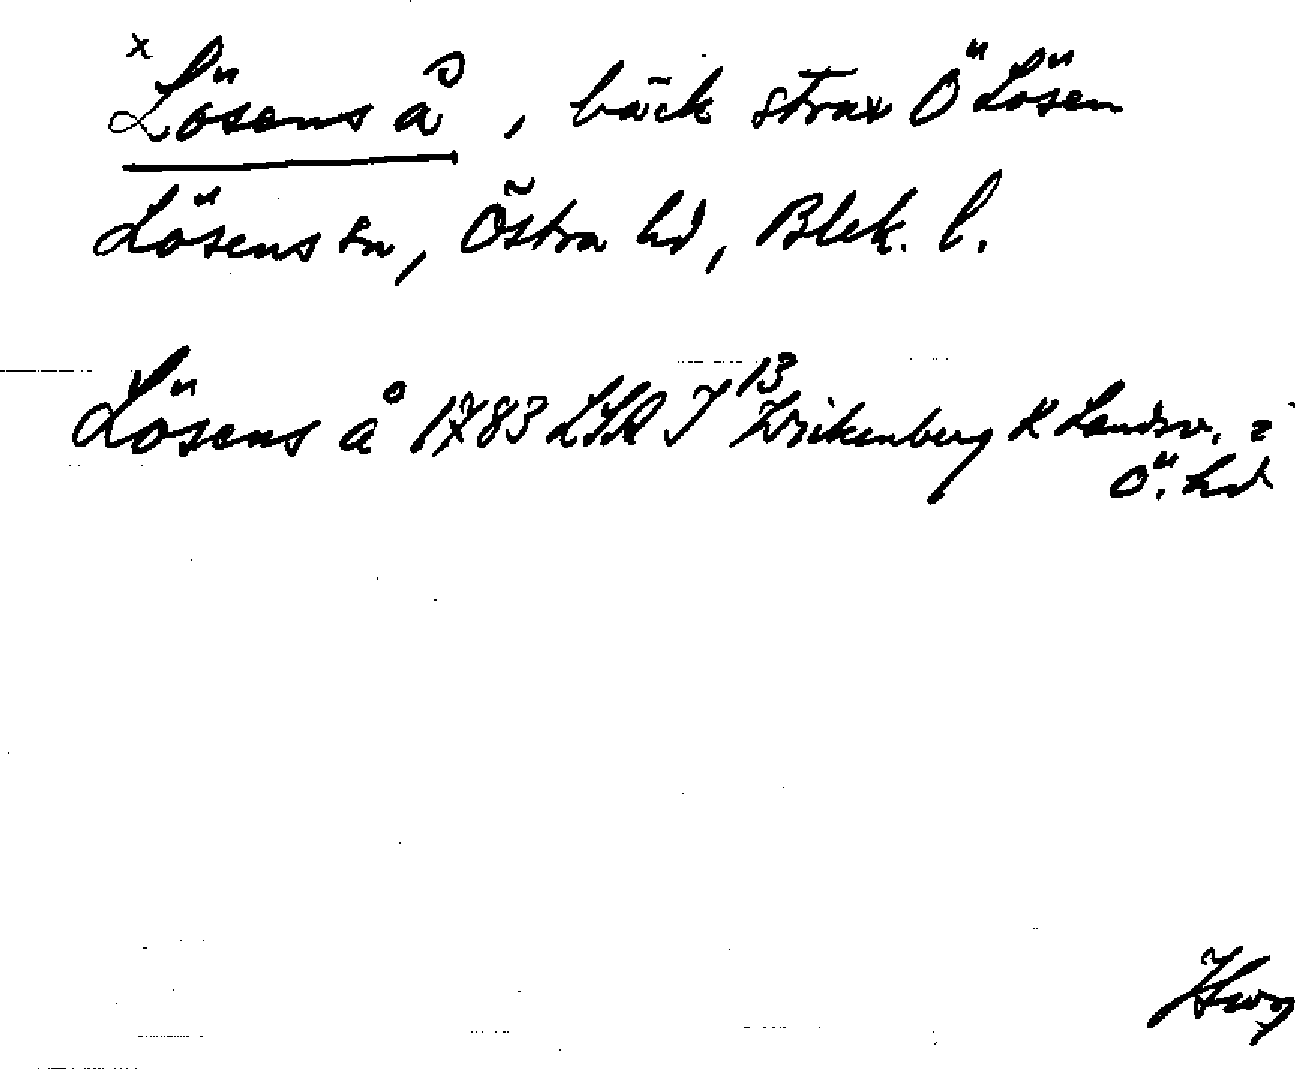 x Lösens å, bäck strax Ö Lösen
Lösens sn, Östra hd, Blek. l.
Lösens å 1783 LSA I 13 Wrikenberg K Landsv. i
Ö. hd